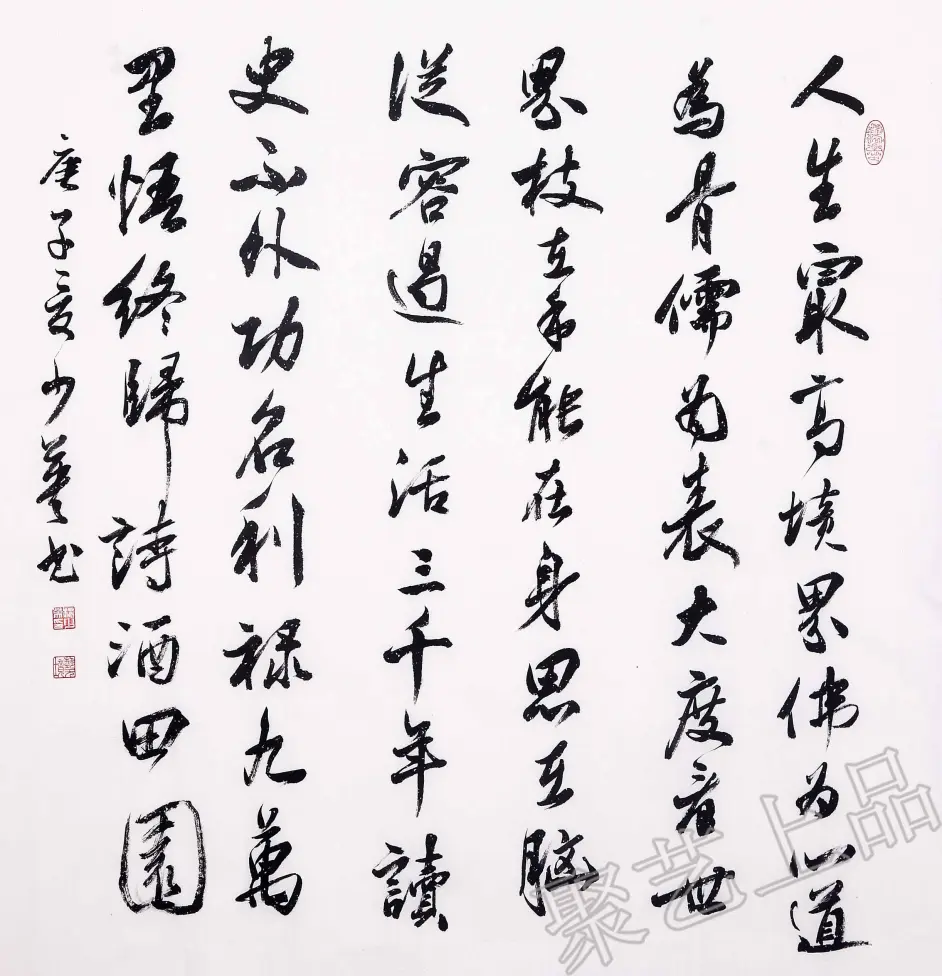 人生最高境界佛为心道
為骨儒为表大度看世
界枝在手能在身思在脑
從容過生活三千年讀
史不外功名利禄九萬
里悟终歸詩酒田園
庚子夏少书
聚艺上品